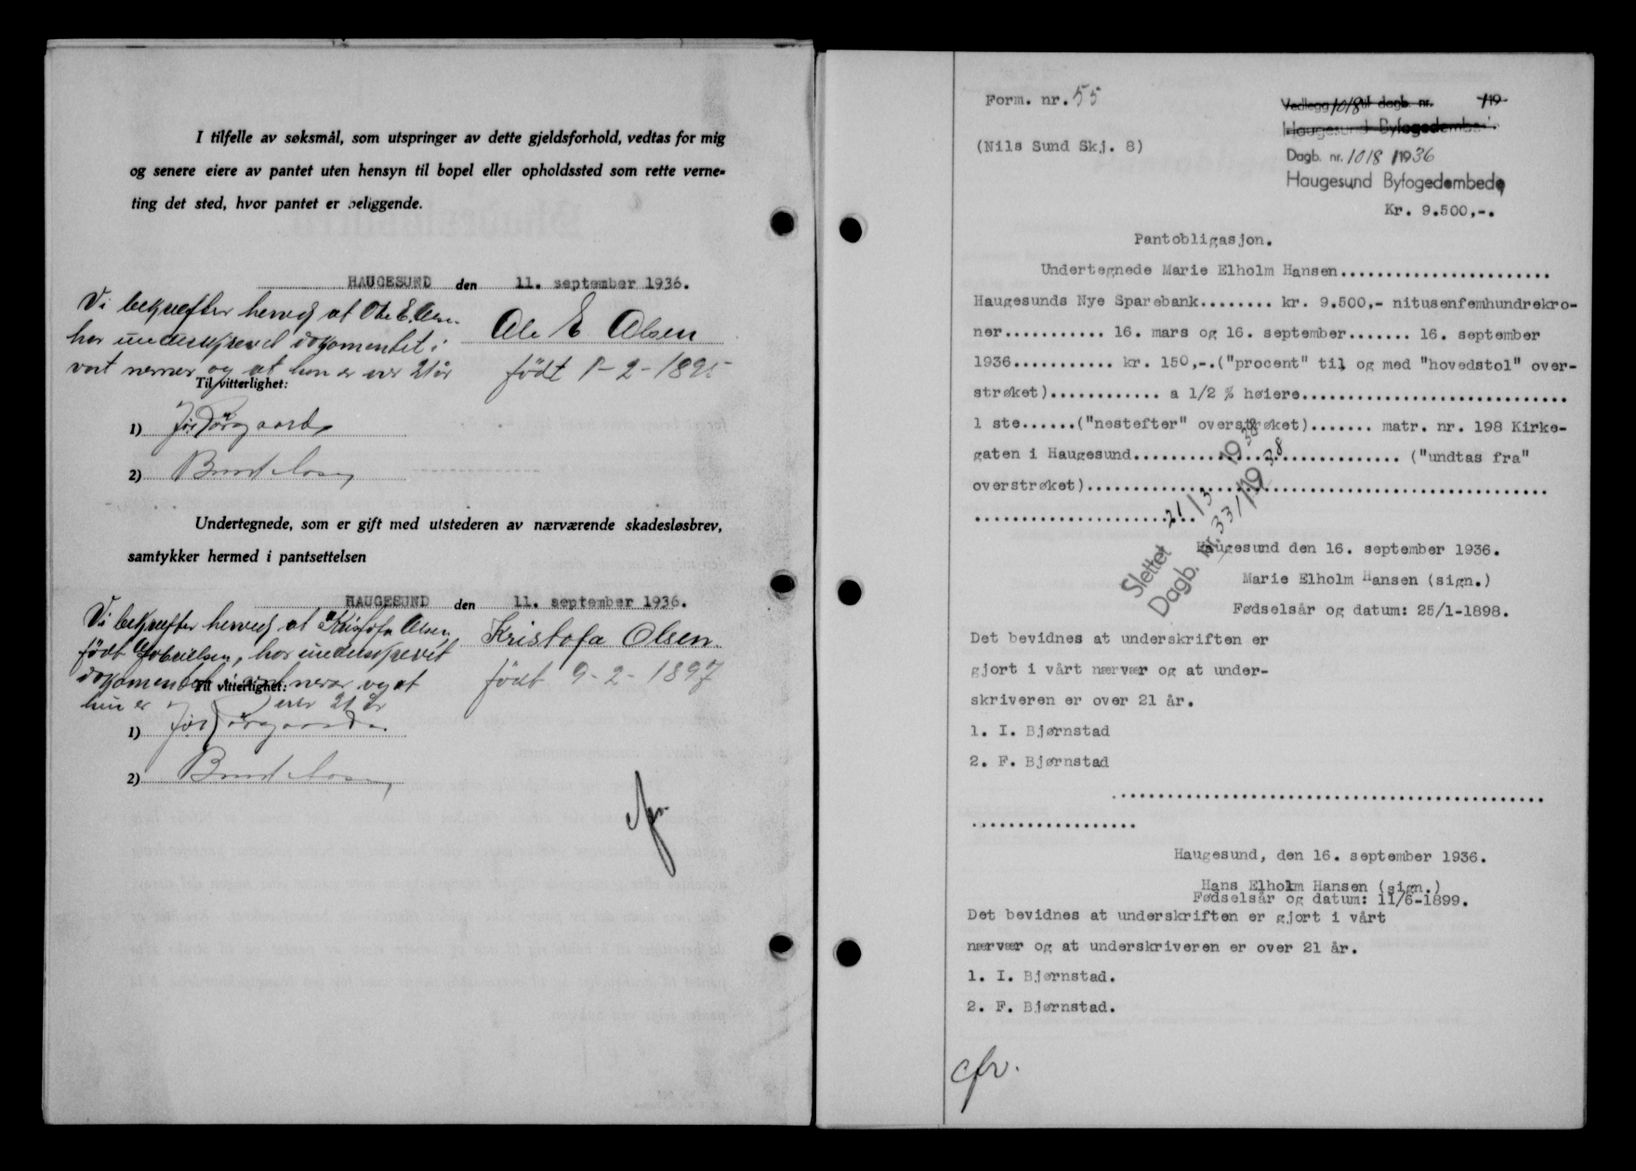 I tilfelle av søksmål, som utspringer av dette gjeldsforhold, vedtas for mig
og senere eiere av pantet uten hensyn til bopel eller opholdssted som rette verne-
ting det sted, hvor pantet er beliggende.
HAUGESUND den 11. september 1936.
Vi bekrefter herved at Ole E. Olsen
har underskrevet dokomentet i
vort nerver og at han er over 21 år
Ole E Olsen
født 1-2-1895
Til vitterlighet:
1)
2)
Undertegnede, som er gift med utstederen av nærværende skadesløsbrev,
samtykker hermed i pantsettelsen
HAUGESUND den 11. september 1936.
Vi bekrefter herved at Kristofa Olsen
født, har underskrevet
dokomentet i vort nerver og at
hun er over 21 år
Kristofa Olsen
født 9-2-1897
Til vitterlighet:
1)
2)
Form. nr. 55
(Nils Sund Skj. 8)
Vedlegg 1018 til dagb. nr. /19
Haugesund Byfogedembede
Dagb. nr. 1018/1936
Haugesund Byfogedembede
Kr. 9.500,-.
Pantobligasjon.
Undertegnede Marie Elholm Hansen......................
Haugesunds Nye Sparebank........ kr. 9.500,- nitusenfemhundrekro-
ner........... 16. mars og 16. september....... 16. september
1936........... kr. 150,-.("procent" til og med "hovedstol" over-
strøket)............ a 1/2 % høiere.............................
1 ste......("nestefter" overstrøket)....... matr. nr. 198 Kirke-
gaten i Haugesund............................... ("undtas fra"
overstrøket).....................................................
Slettet 21/3 1938
Dagb. nr. 33/1938
Haugesund den 16. september 1936.
Marie Elholm Hansen (sign.)
Fødselsår og datum: 25/1-1898.
Det bevidnes at underskriften er
gjort i vårt nærvær og at under-
skriveren er over 21 år.
1. I. Bjørnstad
2. F. Bjørnstad
Haugesund, den 16. september 1936.
Hans Elholm Hansen (sign.)
Fødselsår og datum: 11/6-1899.
Det bevidnes at underskriften er gjort i vårt
nærvær og at underskriveren er over 21 år.
1. I. Bjørnstad.
2. F. Bjørnstad.
cfr.